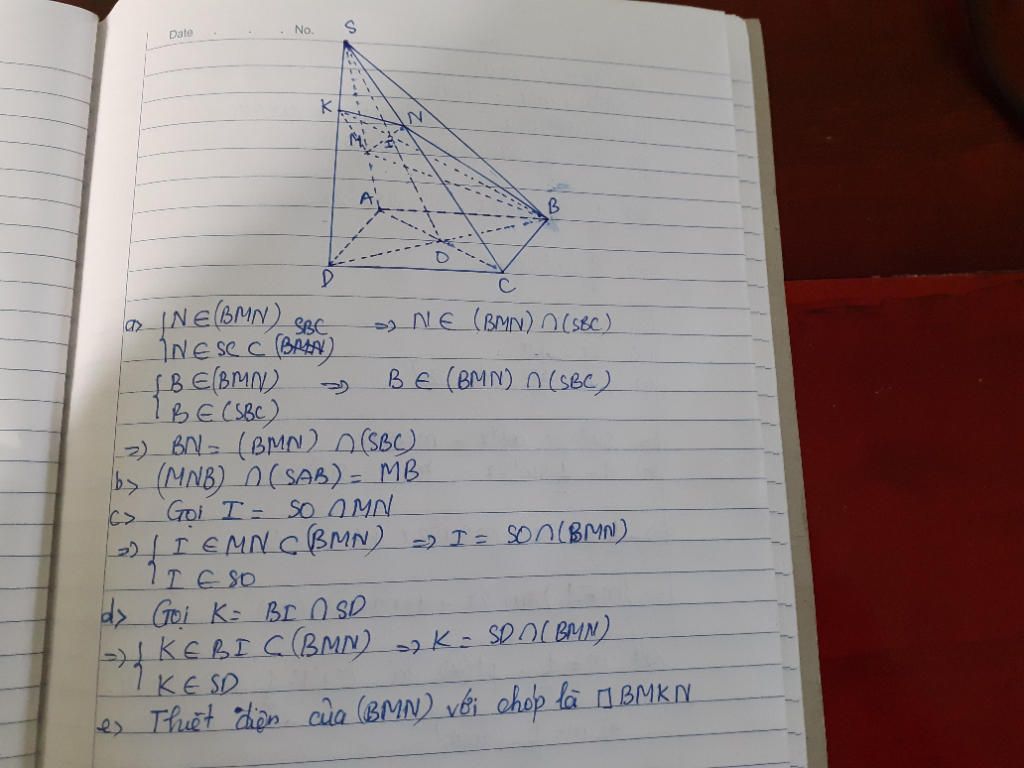 Date . . . No.
S
K
N
M
I
A
B
D
O
C
a> { N ∈ (BMN) ⇒ N ∈ (BMN) ∩ (SBC)
SBC
N ∈ SC ⊂ (BMN)
{ B ∈ (BMN) ⇒ B ∈ (BMN) ∩ (SBC)
B ∈ (SBC)
⇒ BN = (BMN) ∩ (SBC)
b> (MNB) ∩ (SAB) = MB
c> Gọi I = SO ∩ MN
⇒ { I ∈ MN ⊂ (BMN) ⇒ I = SO ∩ (BMN)
I ∈ SO
d> Gọi K = BI ∩ SD
⇒ { K ∈ BI ⊂ (BMN) ⇒ K = SD ∩ (BMN)
K ∈ SD
e> Thiết diện của (BMN) với chóp là □ BMKN